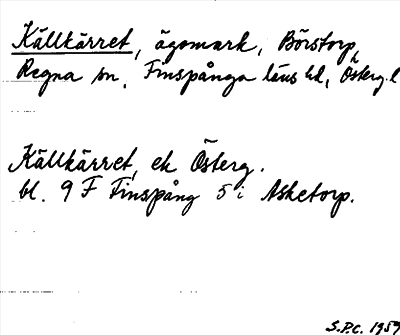 Källkärret, ägomark, Börstorp,
Regna sn, Finspånga läns hd, Österg. l
Källkärret, ek Österg.
bl. 9 F Finspång 5 i Asketorp.
S.P.C. 1959